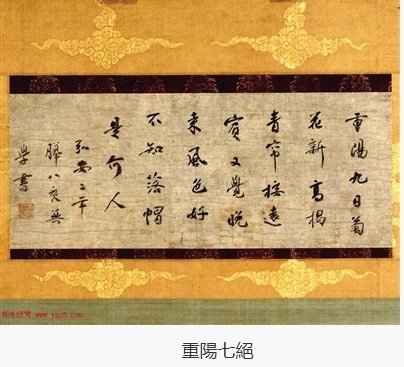 重陽九日菊
花新高揭
青帘接遠
賓又覺晚
來風色好
不知落帽
是何人
弘安二年
臘八夜無
學書
书法欣赏 www.yac8.com
重陽七絕